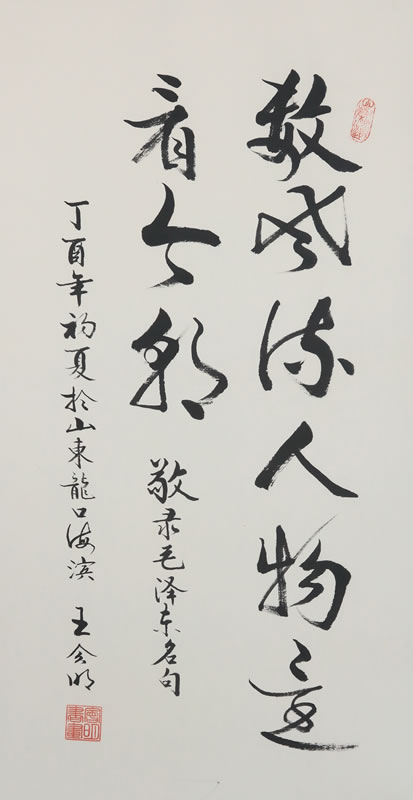 数风流人物还
看今朝
敬录毛泽东名句
丁酉年初夏於山東龍口海滨 王会明